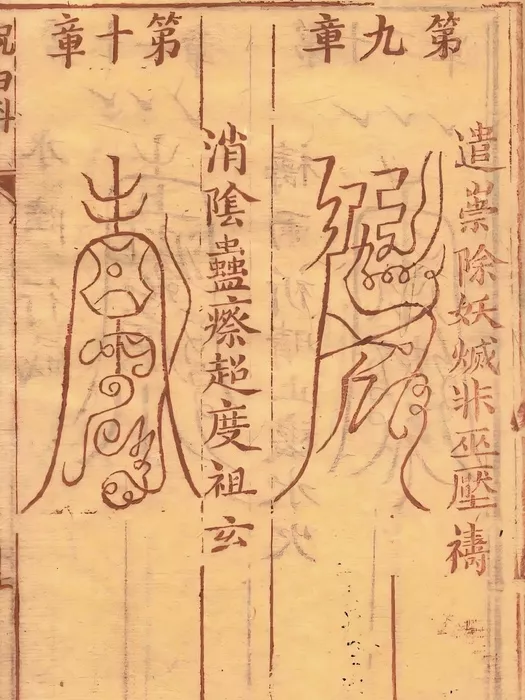 第九章
遣祟除妖滅非巫壓禱
第十章
消陰蠱瘵超度祖玄